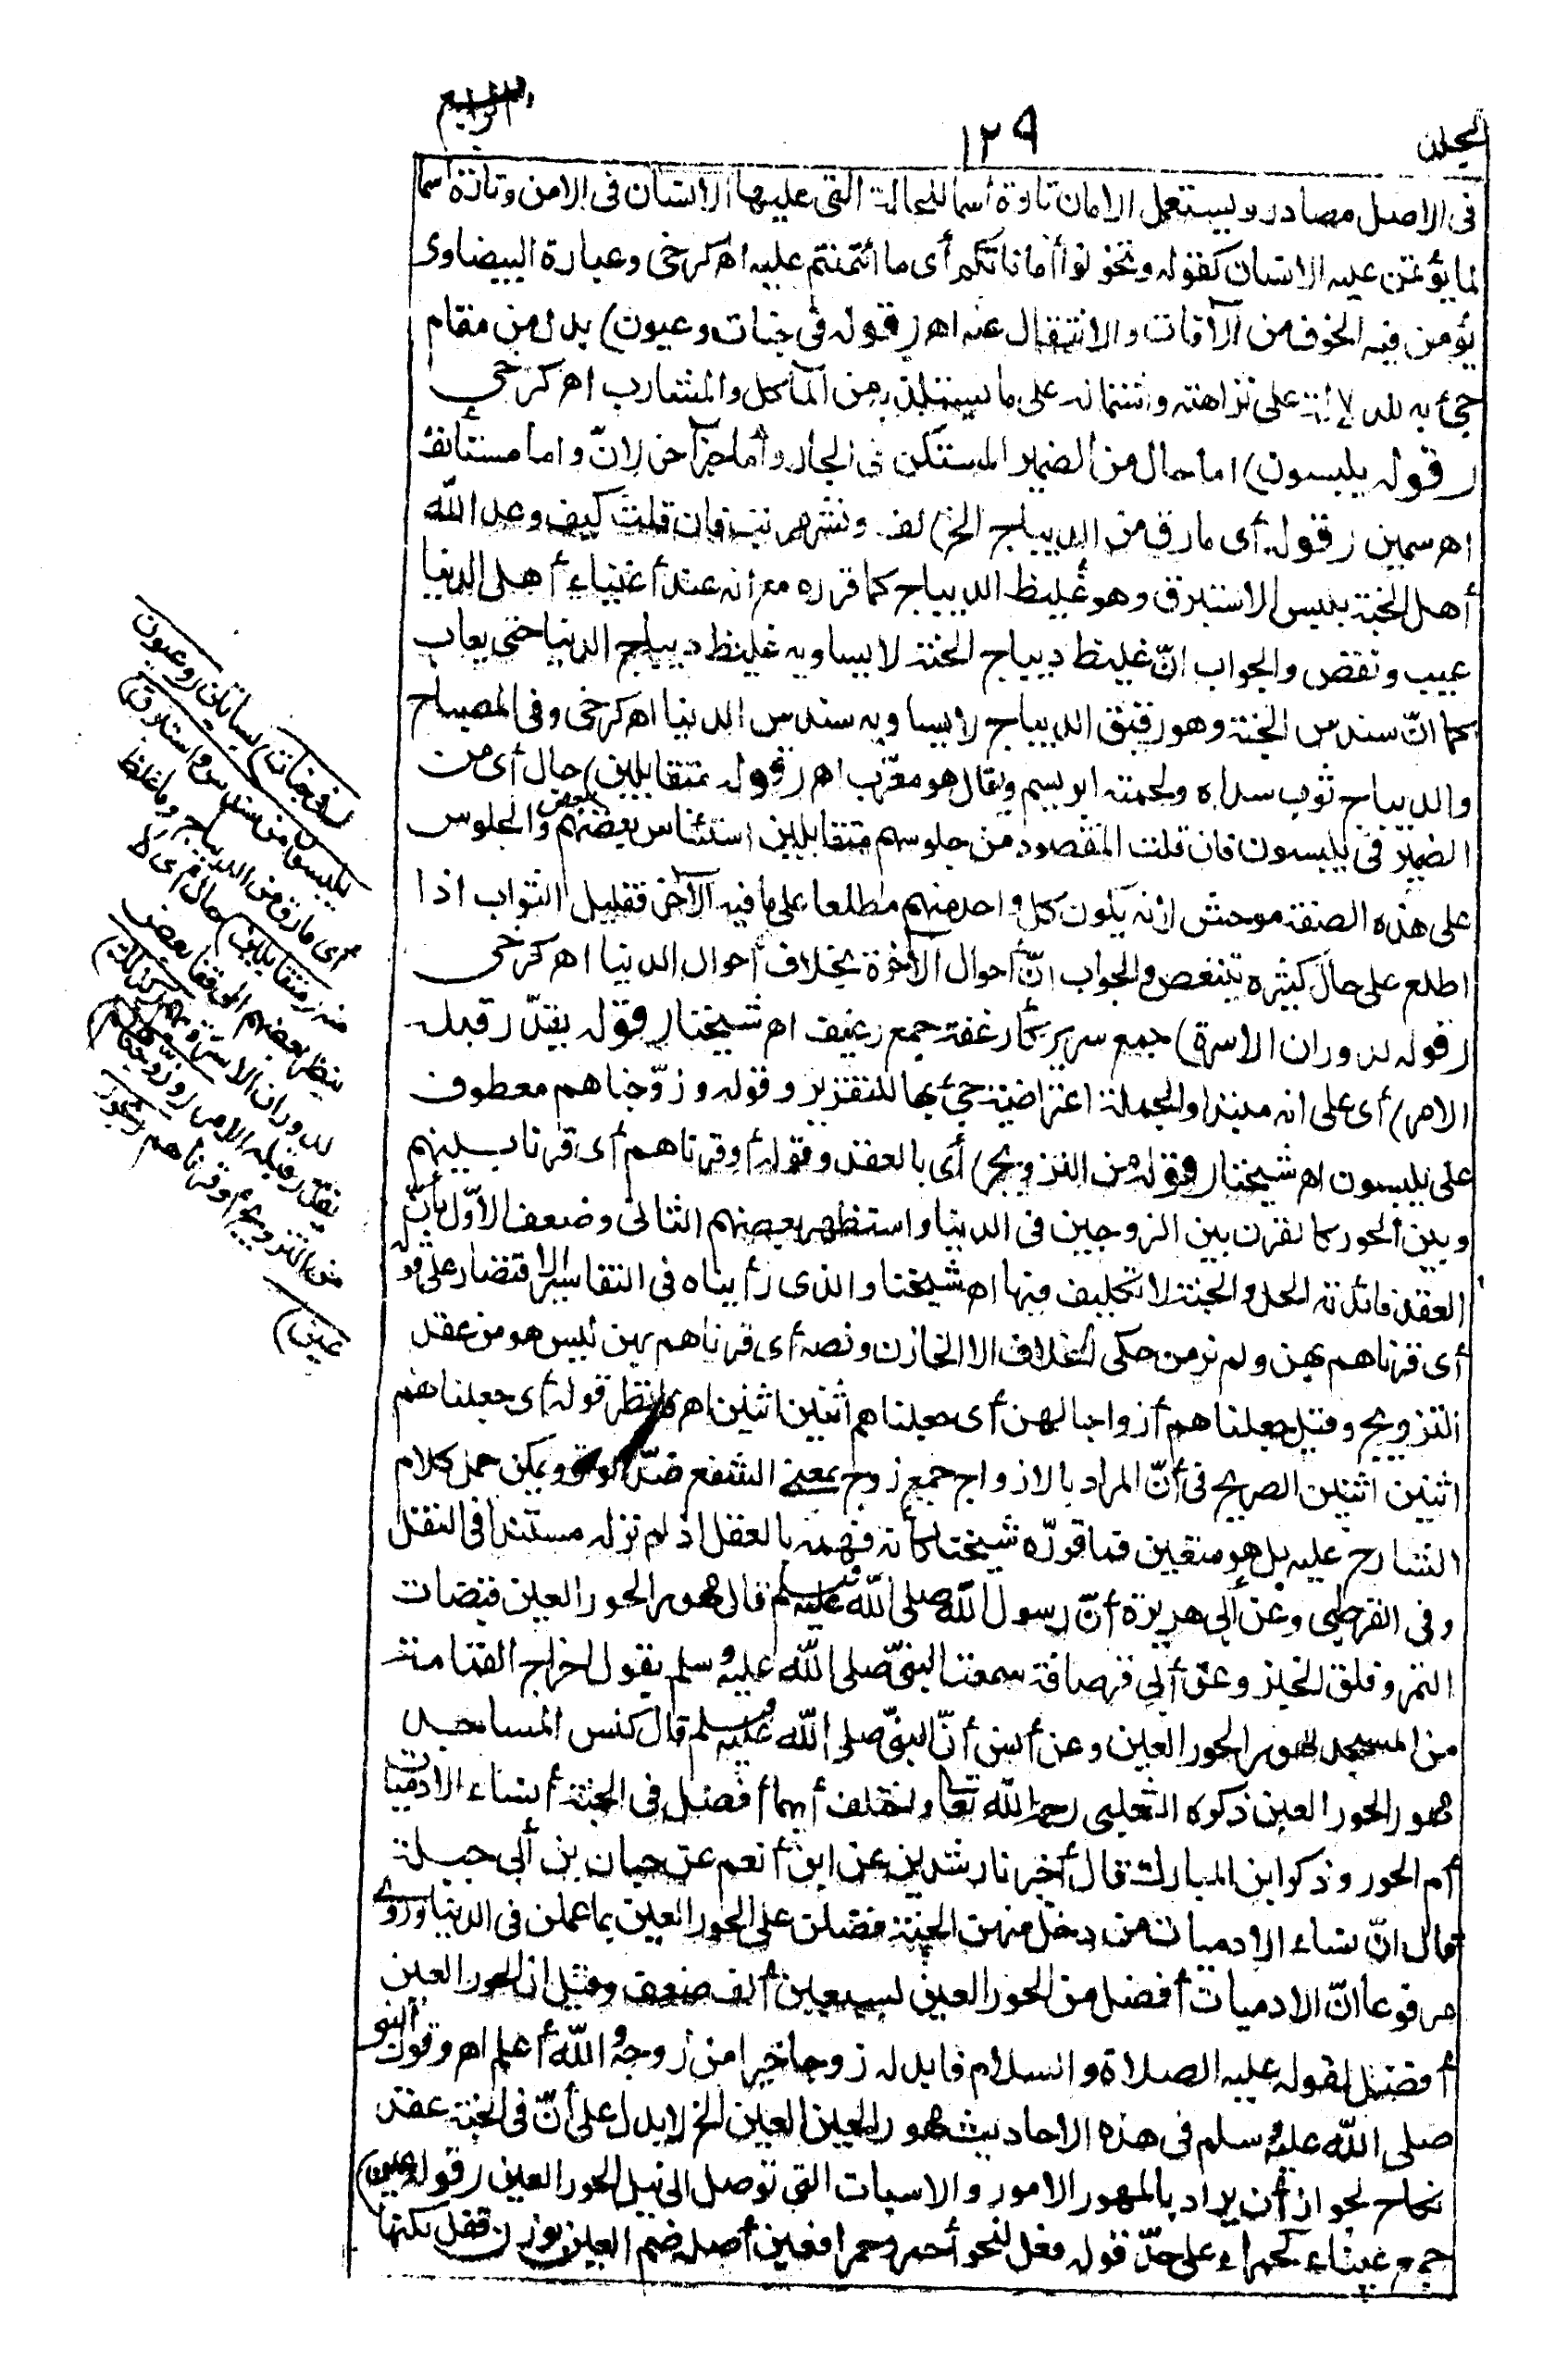 المجلد
١٢٩
الرابع
فى الاصل مصادر ويستعمل الامان تارة أسما للحالة التى عليها الانسان فى الامن وتارة أسما
لما يؤتمن عليه الانسان كقوله وتخونوا أماناتكم أى ما ائتمنتم عليه اهـ كرخى وعبارة البيضاوى
يؤمن فيه الخوف من الآفات والانتقال عنه اهـ (قوله فى جنات وعيون) بدل من مقام
جئ به للدلالة على نزاهته واشتماله على ما يستلذ به من المآكل والمشارب اهـ كرخى
(قوله يلبسون) اما حال من الضمير المستكن فى الجار واما خبر آخر لانّ واما مستأنف
اهـ سمين (قوله أى مارق من الديباج الخ) لف ونشر مرتب فان قلت كيف وعد الله
أهل الجنة بلبس الاستبرق وهو غليظ الديباج كما قرره مع انه عند أغنياء أهل الدنيا
عيب ونقص والجواب انّ غليظ ديباج الجنة لا يساويه غليظ ديباج الدنيا حتى يعاب
كما انّ سندس الجنة وهو رقيق الديباج لا يساويه سندس الدنيا اهـ كرخى وفى المصباح
والديباج ثوب سداه ولحمته ابريسم ويقال هو معرّب اهـ (قوله متقابلين) حال أى من
الضمير فى يلبسون فان قلت المقصود من جلوسهم متقابلين استئناس بعضهم ببعض والجلوس
على هذه الصفة موحش لانه يكون كل واحد منهم مطلعا على ما فيه الآخر فقليل الثواب اذا
اطلع على حال كثيره يتنغص والجواب انّ أحوال الآخرة بخلاف أحوال الدنيا اهـ كرخى
(قوله لدوران الاسرة) جمع سرير كأرغفة جمع رغيف اهـ شيخنا (قوله يقدّر قبله
الامر) أى على انه مبتدا والجملة اعتراضية جئ بها للتقرير وقوله وزوّجناهم معطوف
على يلبسون اهـ شيخنا (قوله من التزويج) أى بالعقد وقوله أو قرناهم أى قرنا بينهم
وبين الحور كما نقرن بين الزوجين فى الدنيا واستظهر بعضهم الثانى وضعف الاوّل بأنّ
العقد فائدته الحل والجنة لا تكليف فيها اهـ شيخنا والذى رأيناه فى التفاسير الاقتصار على قوله
أى قرناهم بهن ولم نر من حكى الخلاف الا الخازن ونصه أى قرناهم بهن ليس هو من عقد
التزويج وقيل جعلناهم أزواجا لهن أى جعلناهم اثنين اثنين اهـ فانظر قوله أى جعلناهم
اثنين اثنين الصريح فى أنّ المراد بالازواج جمع زوج بمعنى الشفع ضدّ الوتر ويمكن حمل كلام
الشارح عليه بل هو متعين فما قرّره شيخنا كأنه فهمه بالعقل اذ لم نر له مستندا فى النقل
وفى القرطبى وعن أبى هريرة أنّ رسول الله صلى الله عليه وسلم قال مهور الحور العين قبضات
التمر وفلق الخبز وعن أبى قرصافة سمعت النبىّ صلى الله عليه وسلم يقول اخراج القمامة
من المسجد مهور الحور العين وعن أنس أنّ النبىّ صلى الله عليه وسلم قال كنس المساجد
مهور الحور العين ذكره الثعلبى رحمه الله تعالى واختلف أيهما أفضل فى الجنة أنساء الادميات
أم الحور وذكر ابن المبارك قال أخبرنا رشدين عن ابن أنعم عن حبان بن أبى جبلة
قال انّ نساء الادميات من دخل منهن الجنة فضلن على الحور العين بما عملن فى الدنيا وروى
مرفوعا انّ الادميات أفضل من الحور العين بسبعين ألف ضعف وقيل ان الحور العين
أفضل لقوله عليه الصلاة والسلام فابدله زوجا خيرا من زوجه والله أعلم اهـ وقول النبى
صلى الله عليه وسلم فى هذه الاحاديث مهور العين العين الخ لا يدل على أنّ فى الجنة عقد
نكاح لجواز أن يراد بالمهور الامور والاسباب التى توصل الى نيل الحور العين (قوله عين)
جمع عيناء كحمراء على حدّ قوله فعل لنحو أحمر وحمرا فعين أصله ضم العين بوزن قفل لكنها
(فى جنات) بساتين (وعيون
يلبسون من سندس واستبرق)
أى مارق من الديباج وما غلظ
منه (متقابلين) حال أى لا
ينظر بعضهم الى قفا بعض
لدوران الاسرّة بهم (كذلك)
يقدّر قبله الامر (وزوّجناهم)
من التزويج أو قرناهم (بحور
عين)